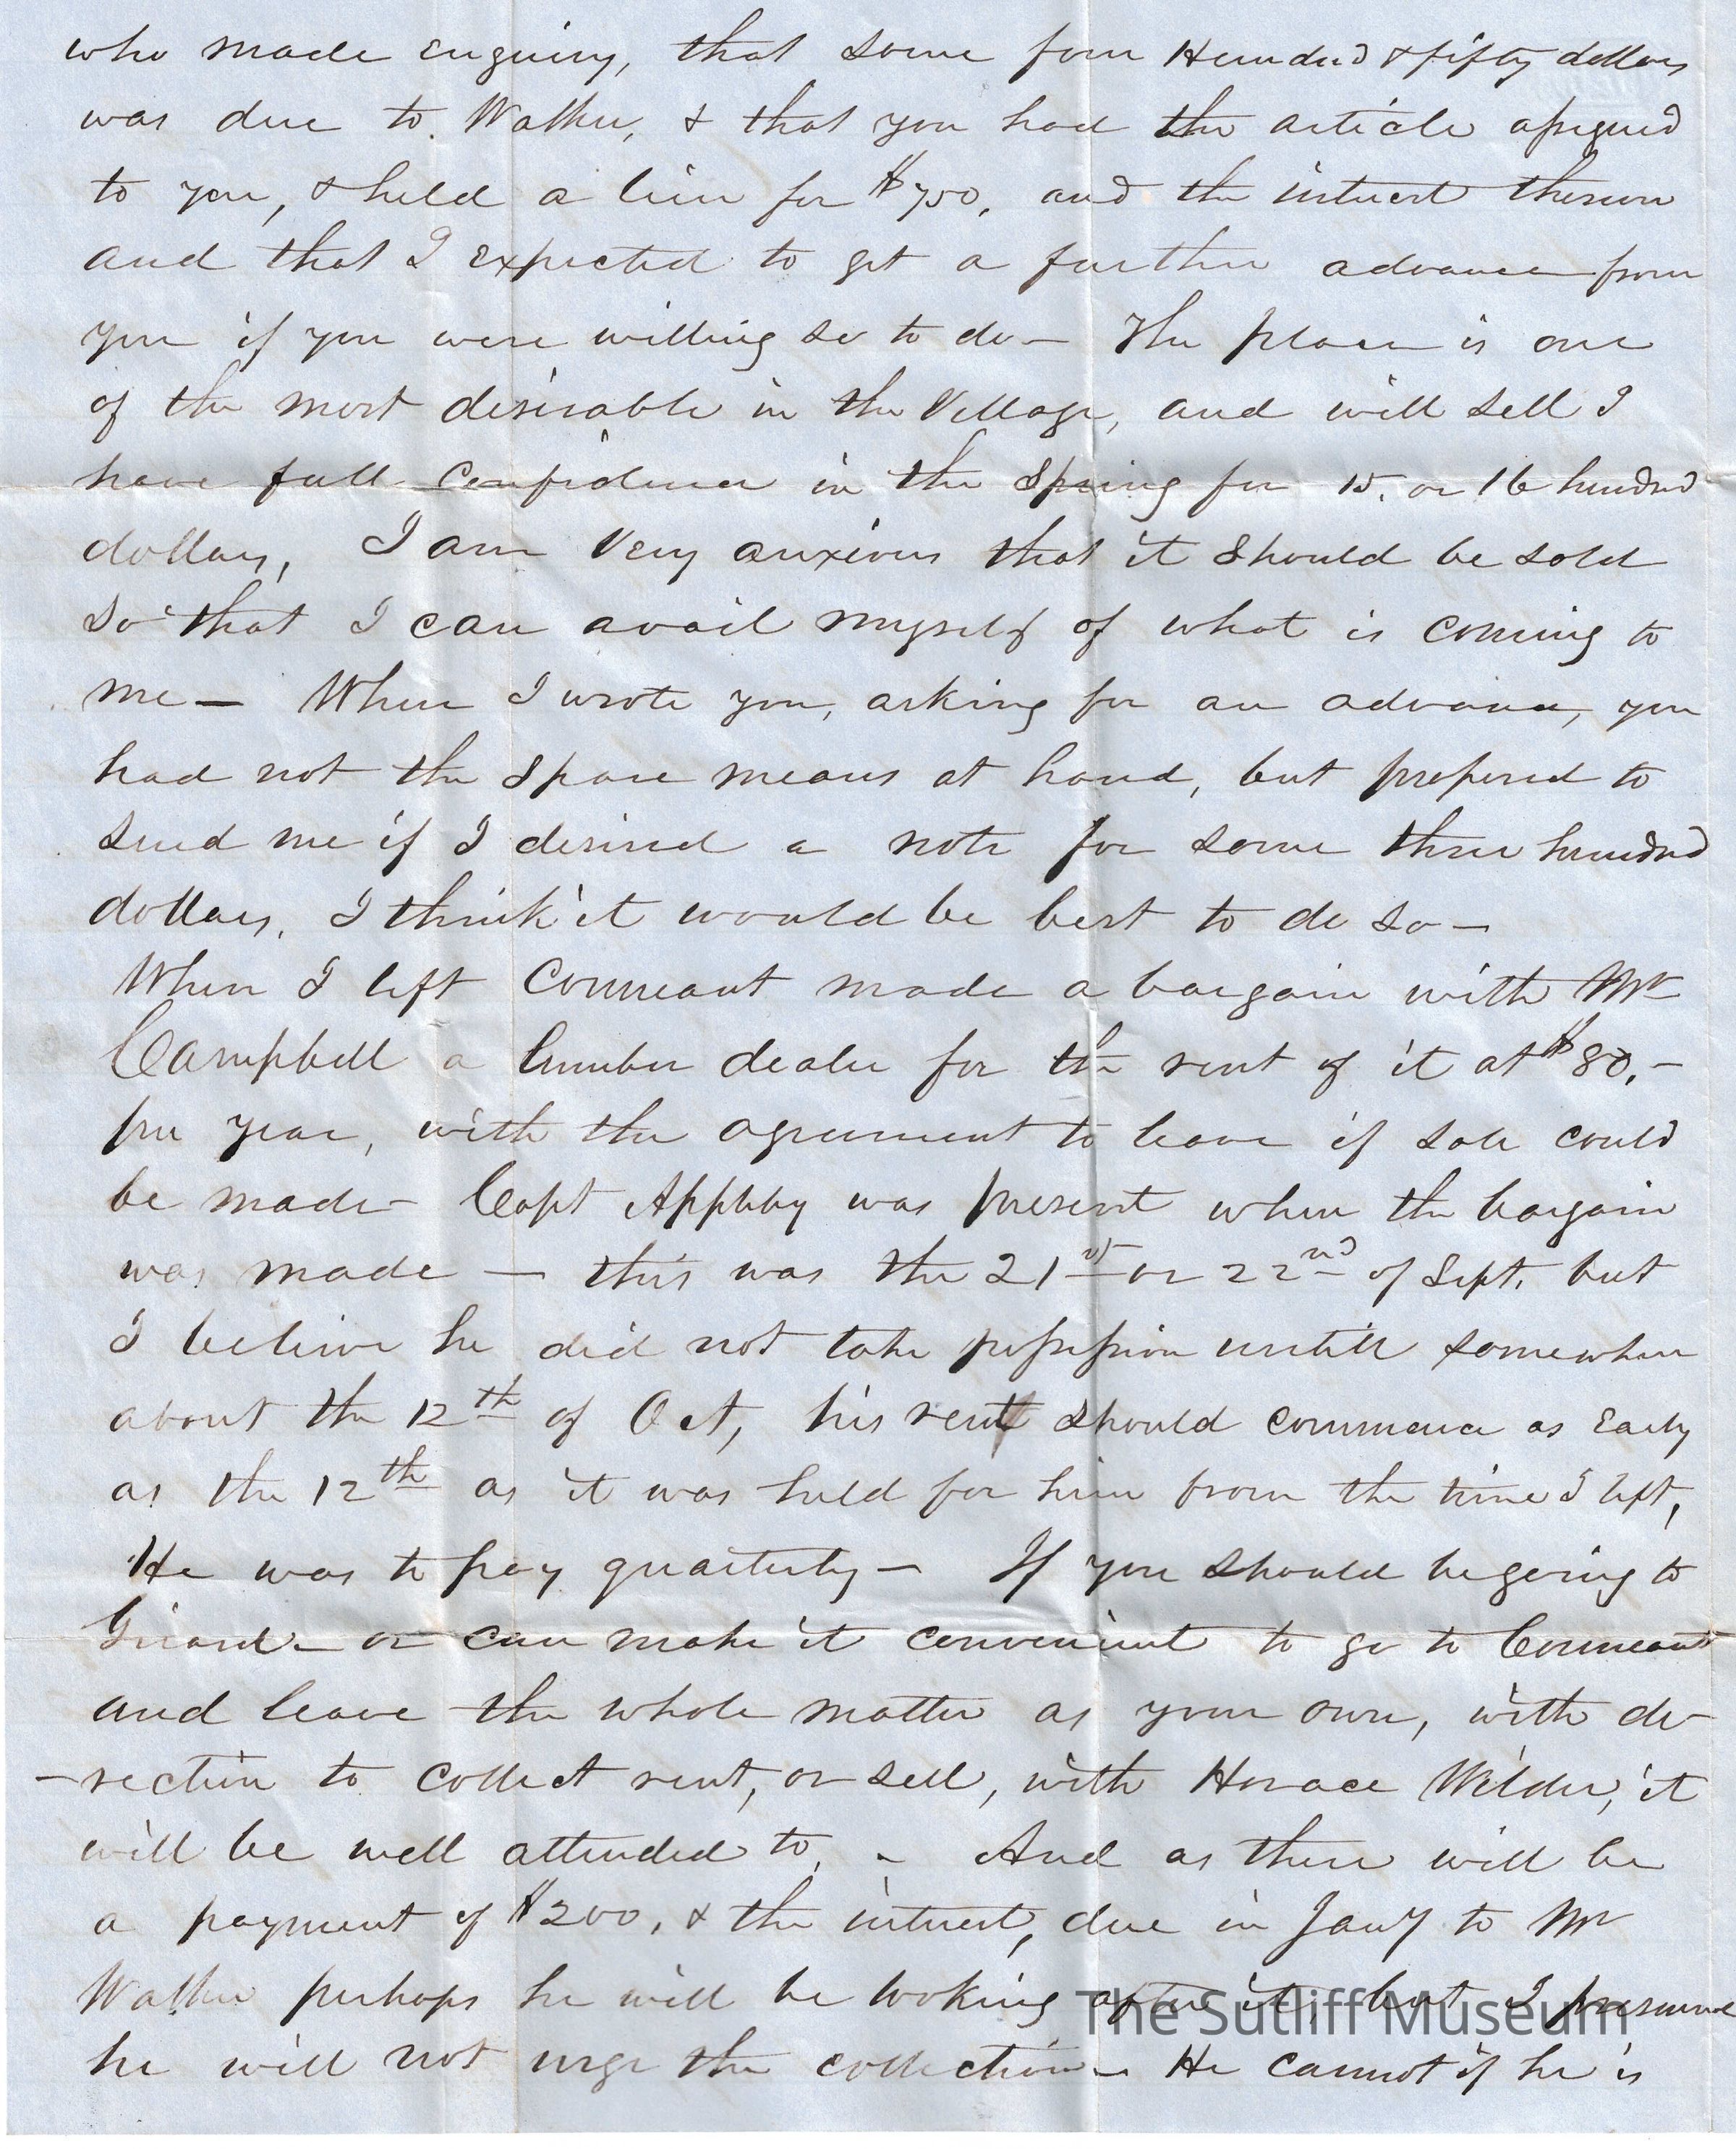 who made enquiry, that some four Hundred & fifty dollars
was due to Walker, & that you had the article assigned
to you, & held a lien for $750, and the interest thereon
and that I expected to get a further advance from
you if you were willing so to do — The place is one
of the most desirable in the Village, and will sell I
have full confidence in the Spring for 15. or 16 hundred
dollars, I am Very anxious that it Should be sold
So that I can avail myself of what is coming to
me — When I wrote you, asking for an advance, you
had not the Spare means at hand, but proposed to
Send me if I desired a note for some three hundred
dollars, I think it would be best to do so —
When I left Conneaut made a bargain with Mr
Campbell a lumber dealer for the rent of it at $80.—
per year, with the agreement to leave if sale could
be made — Capt Appleby was present when the bargain
was made — this was the 21st or 22nd of Sept. but
I believe he did not take possession untill somewhere
about the 12th of Oct, his rent should commence as Early
as the 12th as it was held for him from the time I left,
He was to pay quarterly — If you should be going to
Girard — or can make it convenient to go to Conneaut
and leave the whole matter as your own, with di-
-rection to collect rent, or sell, with Horace Wilder, it
will be well attended to. - And as there will be
a payment of $200, & the interest, due in Jany to Mr
Walker perhaps he will be looking after it, but I presume
he will not urge the collection — He cannot if he is
The Sutliff Museum